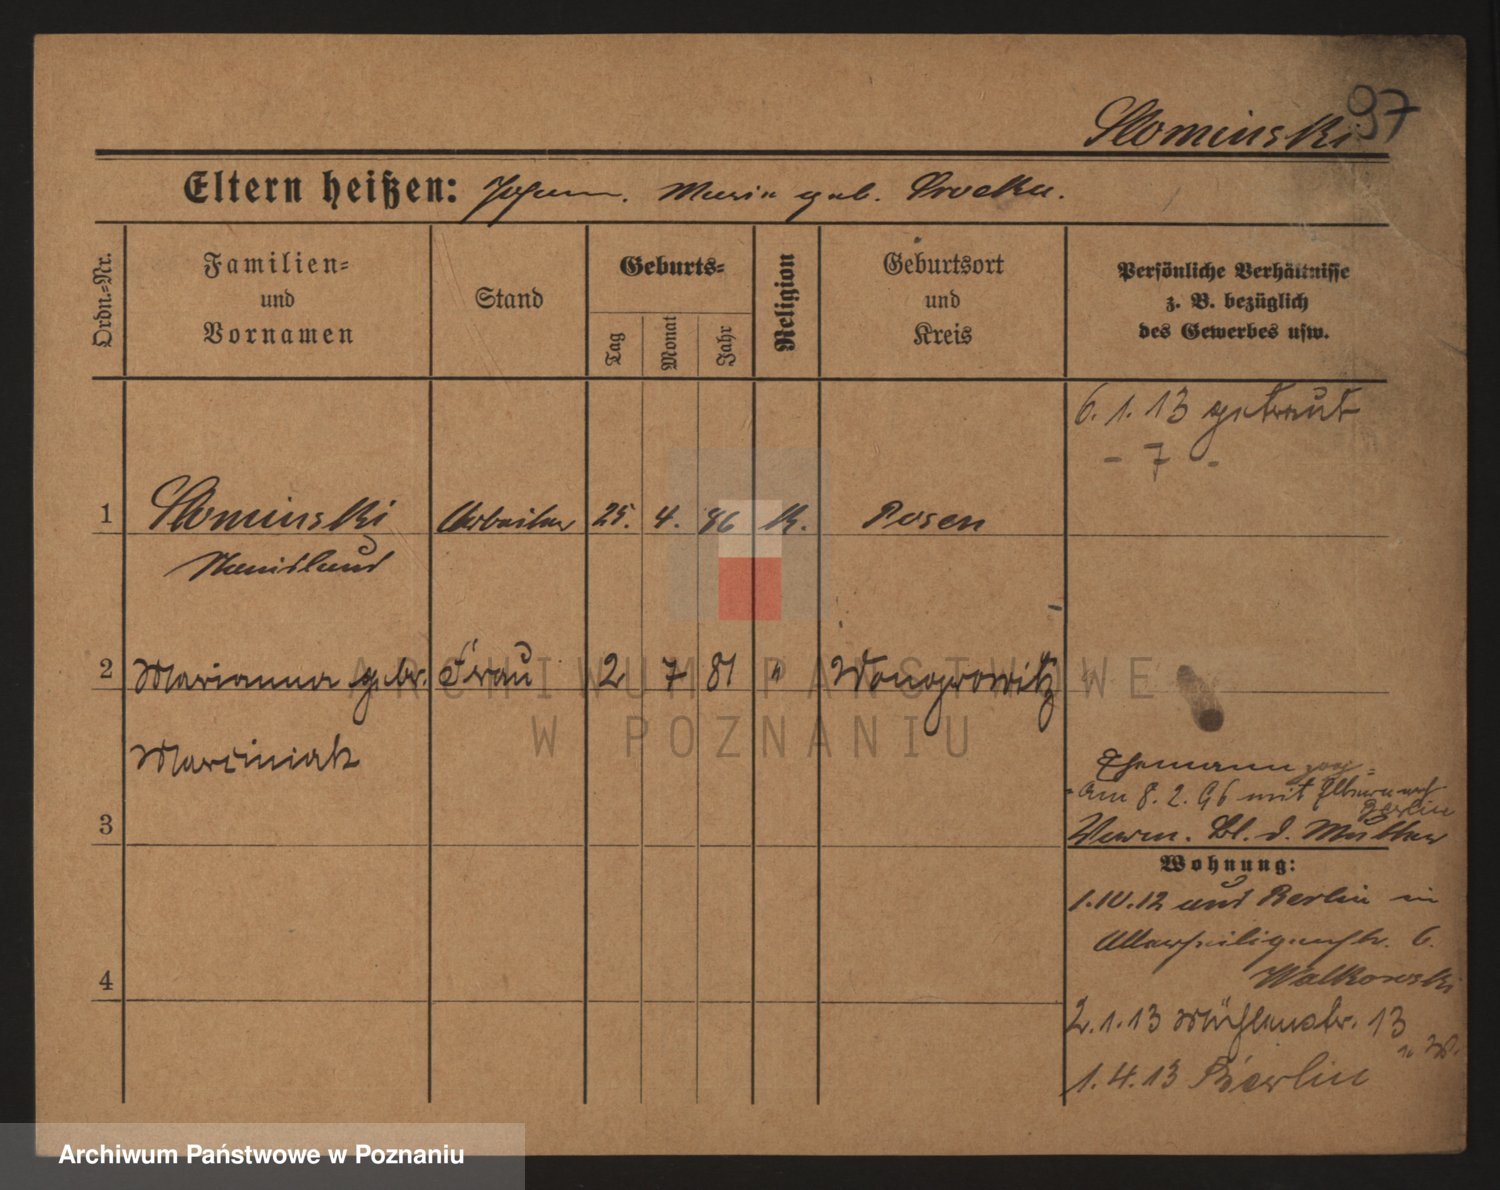 97
Slominski
Eltern heißen: Johann. Maria geb.
Ordn.-Nr.
Familien-
und
Vornamen
Stand
Geburts-
Tag
Monat
Jahr
Religion
Geburtsort
und
Kreis
Persönliche Verhältnisse
z. B. bezüglich
des Gewerbes usw.
6. 1. 13 getraut
- 7 -
1 Slominski Arbeiter 25. 4. 86 k. Posen
Stanislaus
2 Marianna geb. Frau 2 7 81 " Wongrowitz
Marciniak
Ehemann
am 8. 2. 96 mit Eltern nach
Berlin
3
Verm. Bl. d. Mutter
Wohnung:
1.10.12 aus Berlin in
Allerheiligenstr. 6.
Walkowski
4
2.1.13 Mühlenstr. 13
1.4.13 Berlin
ARCHIWUM PAŃSTWOWE
W POZNANIU
Archiwum Państwowe w Poznaniu